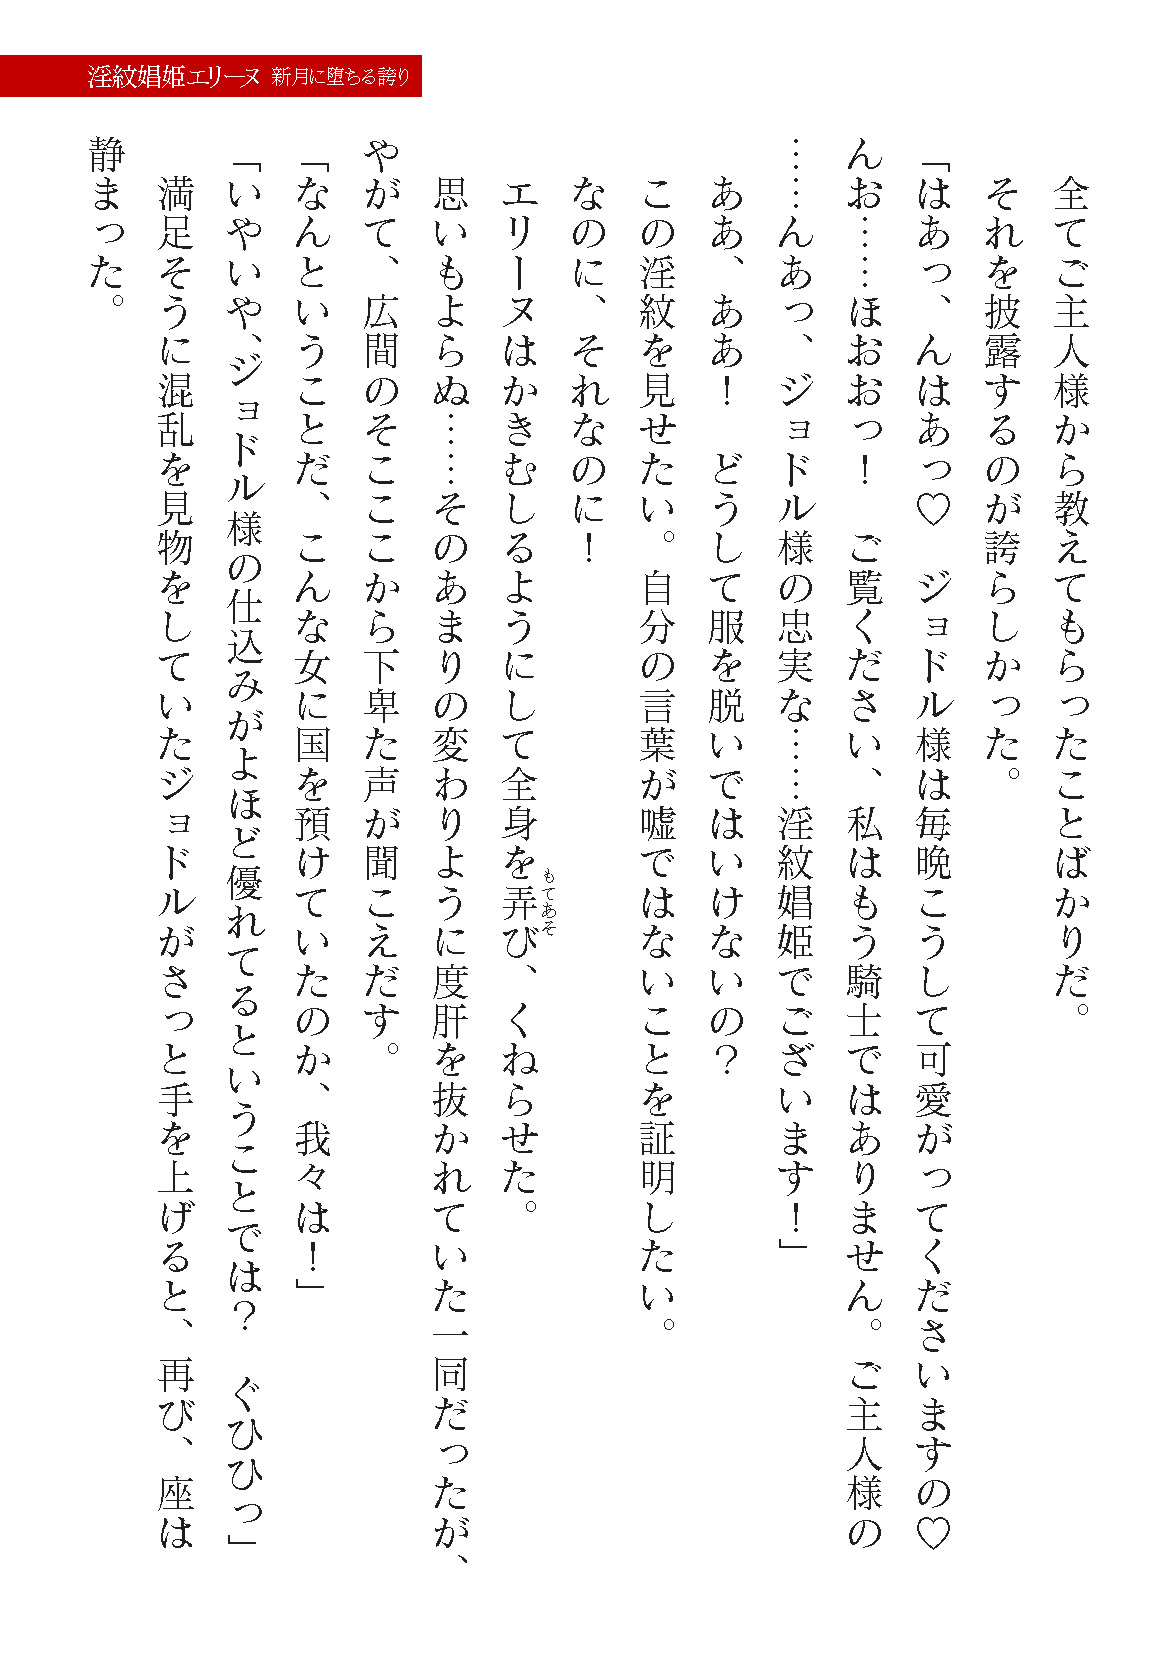 淫紋娼姫エリーヌ 新月に堕ちる誇り
全てご主人様から教えてもらったことばかりだ。
それを披露するのが誇らしかった。
「はあっ、んはあっ♡　ジョドル様は毎晩こうして可愛がってくださいますの♡
んお……ほおおっ！　ご覧ください、私はもう騎士ではありません。ご主人様の
……んあっ、ジョドル様の忠実な……淫紋娼姫でございます！」
ああ、ああ！　どうして服を脱いではいけないの？
この淫紋を見せたい。自分の言葉が嘘ではないことを証明したい。
なのに、それなのに！
エリーヌはかきむしるようにして全身を弄び、くねらせた。
もてあそ
思いもよらぬ……そのあまりの変わりように度肝を抜かれていた一同だったが、
やがて、広間のそこここから下卑た声が聞こえだす。
「なんということだ、こんな女に国を預けていたのか、我々は！」
「いやいや、ジョドル様の仕込みがよほど優れてるということでは？　ぐひひっ」
満足そうに混乱を見物をしていたジョドルがさっと手を上げると、再び、座は
静まった。